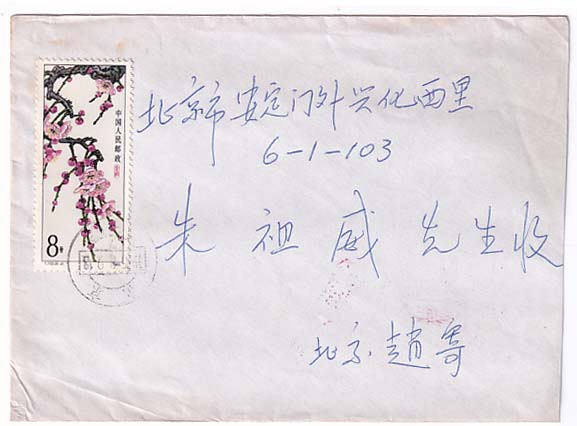 北京市安定门外兴化西里
6-1-103
朱祖威先生收
北京.赵寄
中国人民邮政
8分